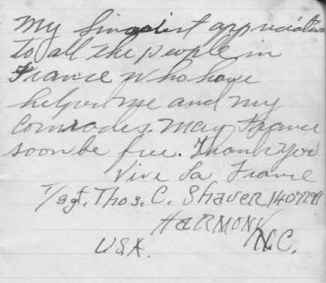 My Singalist appreciation
to all the people in
France who have
helped me and my
comrades. May France
soon be free. Thank You
Vive La France
T/Sgt. Thos. C. Shaver
HARMONY N.C.
USA.